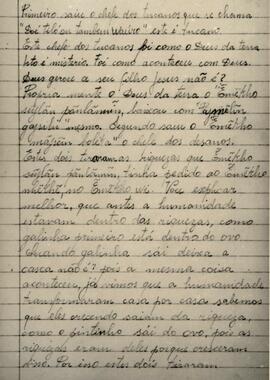 Primeiro saiu o chefe dos tucanos que se chama
este é Tucano.
Este chefe dos tucanos foi como o Deus da terra
Isto é mistério. Foi como aconteceu com Deus.
Deus gerou a seu filho Jesus não é?
Própria mente o Deus da terra o Ëmëkho
sulãn pãnlãmin,
mesmo. Segundo saiu o Ëmëkho
bolita" o chefe dos desanos.
Estes dois tiraram as riquezas que Ëmëkho
sulãn pãnlãmin, tinha pedido ao Ëmëkho
no Ëmëkho wi. Vou explicar
melhor, que antes a humanidade
estavam dentro das riquezas, como
galinha primeiro está dentro do ovo.
Quando galinha sai deixa a
casca não é? pois a mesma coisa
aconteceu, já vimos que a humanidade
transformaram casa por casa sabemos
que eles crescendo saíam da riqueza,
como o pintinho sai do ovo, pois as
riquezas eram deles porque cresceram
disso. Por isso estes dois tiraram